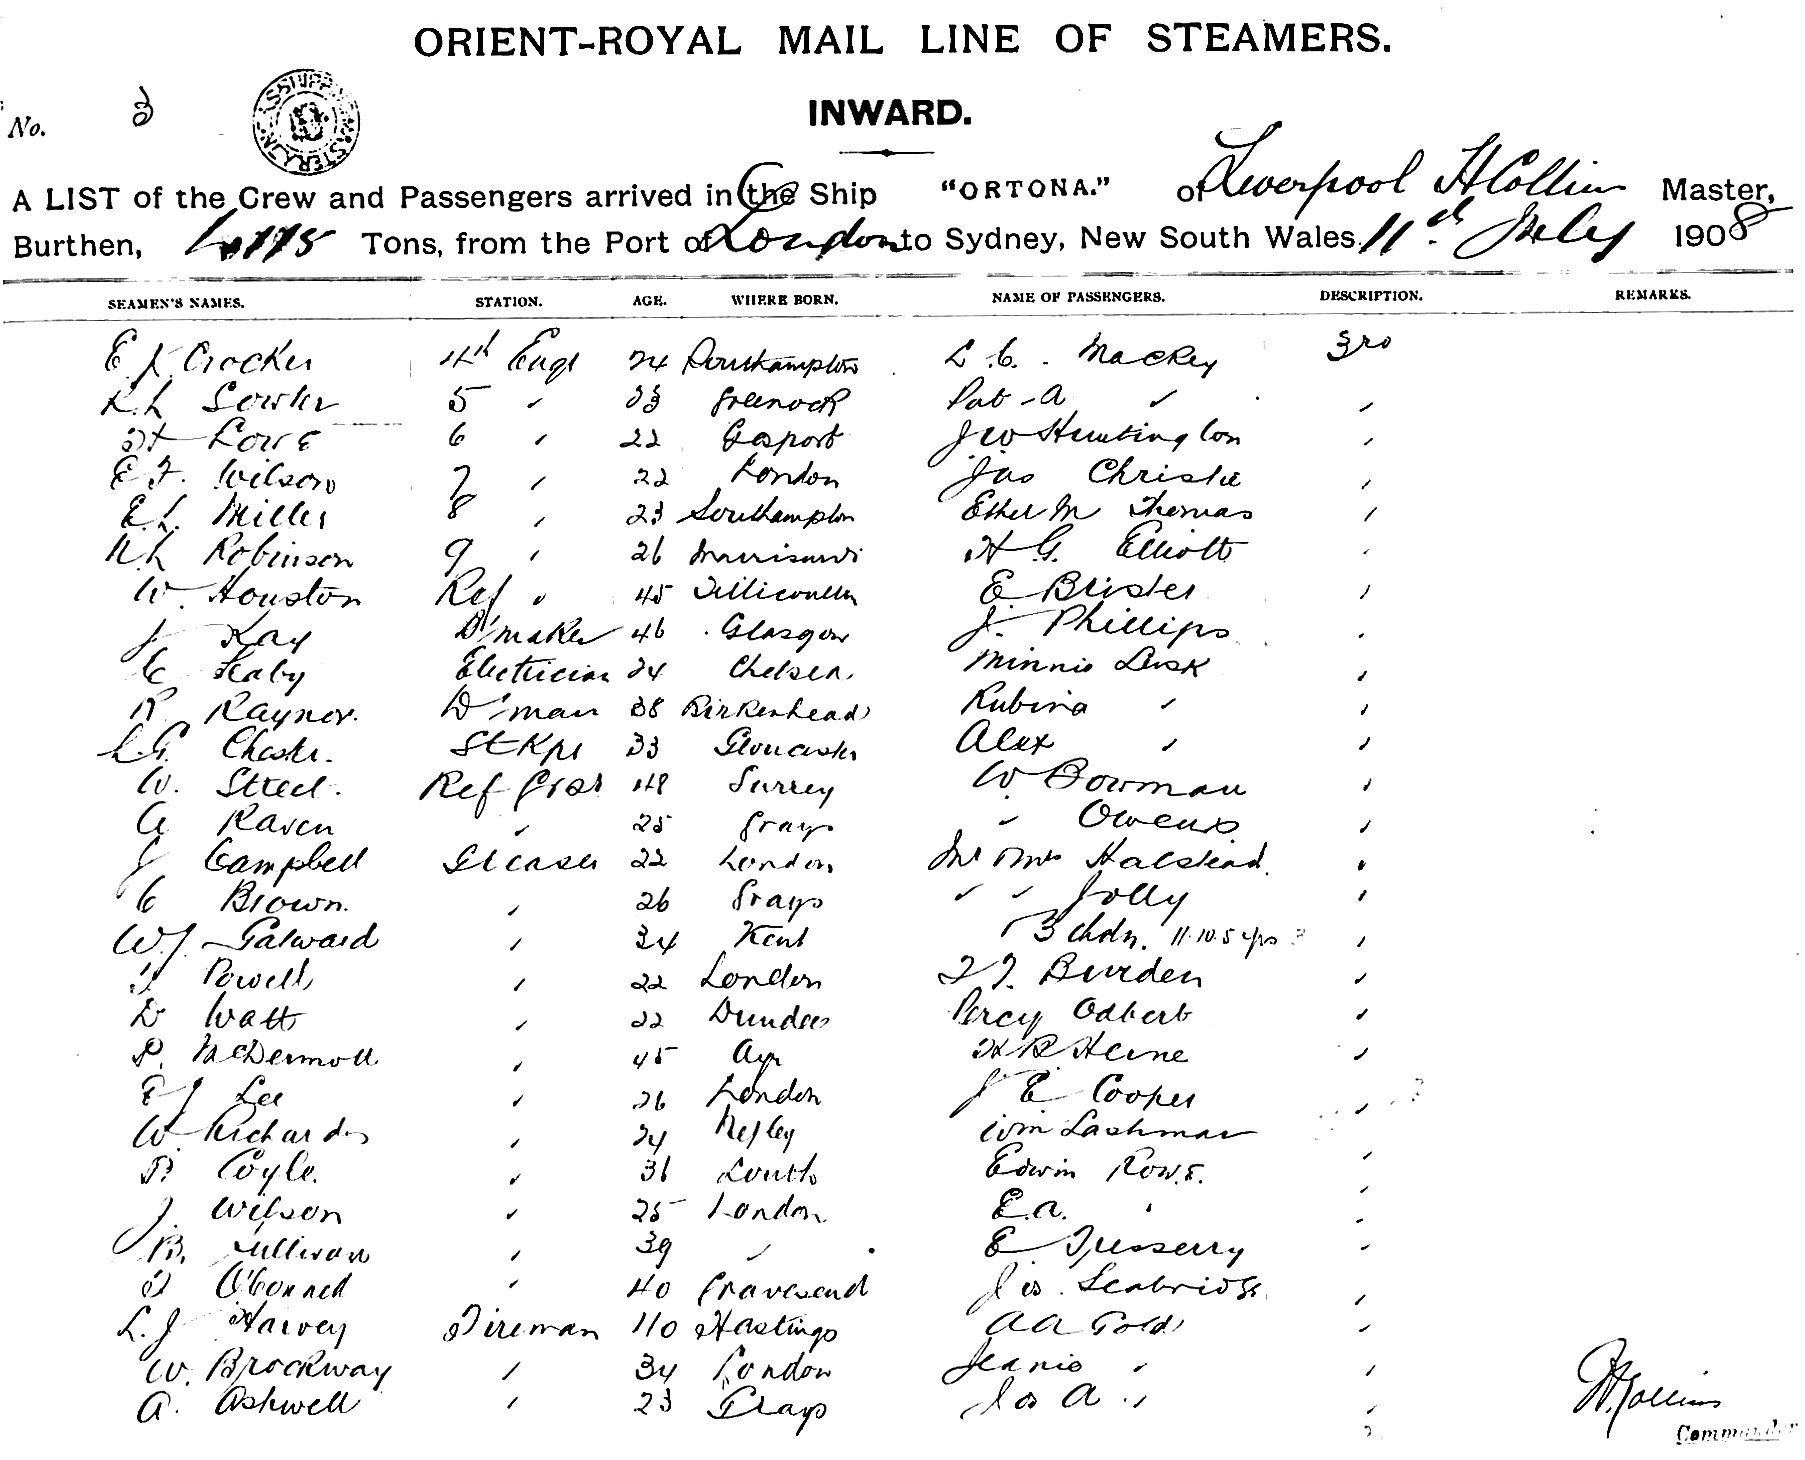 ORIENT-ROYAL MAIL LINE OF STEAMERS.
No. 3
INWARD.
A LIST of the Crew and Passengers arrived in the Ship "ORTONA." of Liverpool H Collins Master,
Burthen, 4115 Tons, from the Port of London to Sydney, New South Wales. 11th July 1908
SEAMEN'S NAMES. STATION. AGE. WHERE BORN. NAME OF PASSENGERS. DESCRIPTION. REMARKS.
E J Crocker 4th Engr 24 Southampton L. C. Mackey 3rd
5 " 33 Greenock Pat A " "
H Lowe 6 " 22 Gosport J W Huntington "
E F. Wilson 7 " 22 London Jas Christie "
E. L. Miller 8 " 23 Southampton Ether M Thomas "
Robinson 9 " 26 H G. Elliott "
W. Houston Ref " 45 Tillicoultry E Brister "
J Kay B'maker 46 Glasgow J. Phillips "
C Electrician 24 Chelsea. Minnie Lusk "
R Raynor. D'man 38 Birkenhead Rubina " "
L G. Chester. StKpr 33 Gloucester Alex " "
W. Steel. Ref Grsr 48 Surrey W. Bowman "
A Raven " 25 Grays " Owens "
J Campbell Greaser 22 London Mr & Mrs Halstead. "
C Brown. " 26 Grays " " Jolly "
W. J. Galward " 34 Kent 3 chdn. 11. 10. 5 yrs "
Powell " 22 London Burden "
D Watt " 22 Dundee Percy Odbert "
P. McDermott " 45 Ayr H R Heine "
E J Lee " 26 London J E Cooper "
W Richards " 24 Netley Wm Lashmar "
Coyle. " 36 Louth Edwin Rowe. "
J. Wilson " 25 London E. A. " "
B. Sullivan " 39 " E "
O'Connell " 40 Gravesend Jos. Seabridge "
L. J Harvey Fireman 40 Hastings A A Gold "
W. Brockway " 34 London Jeanie " "
A. Ashwell " 23 Grays Jos A " "
H. Collins
Commander